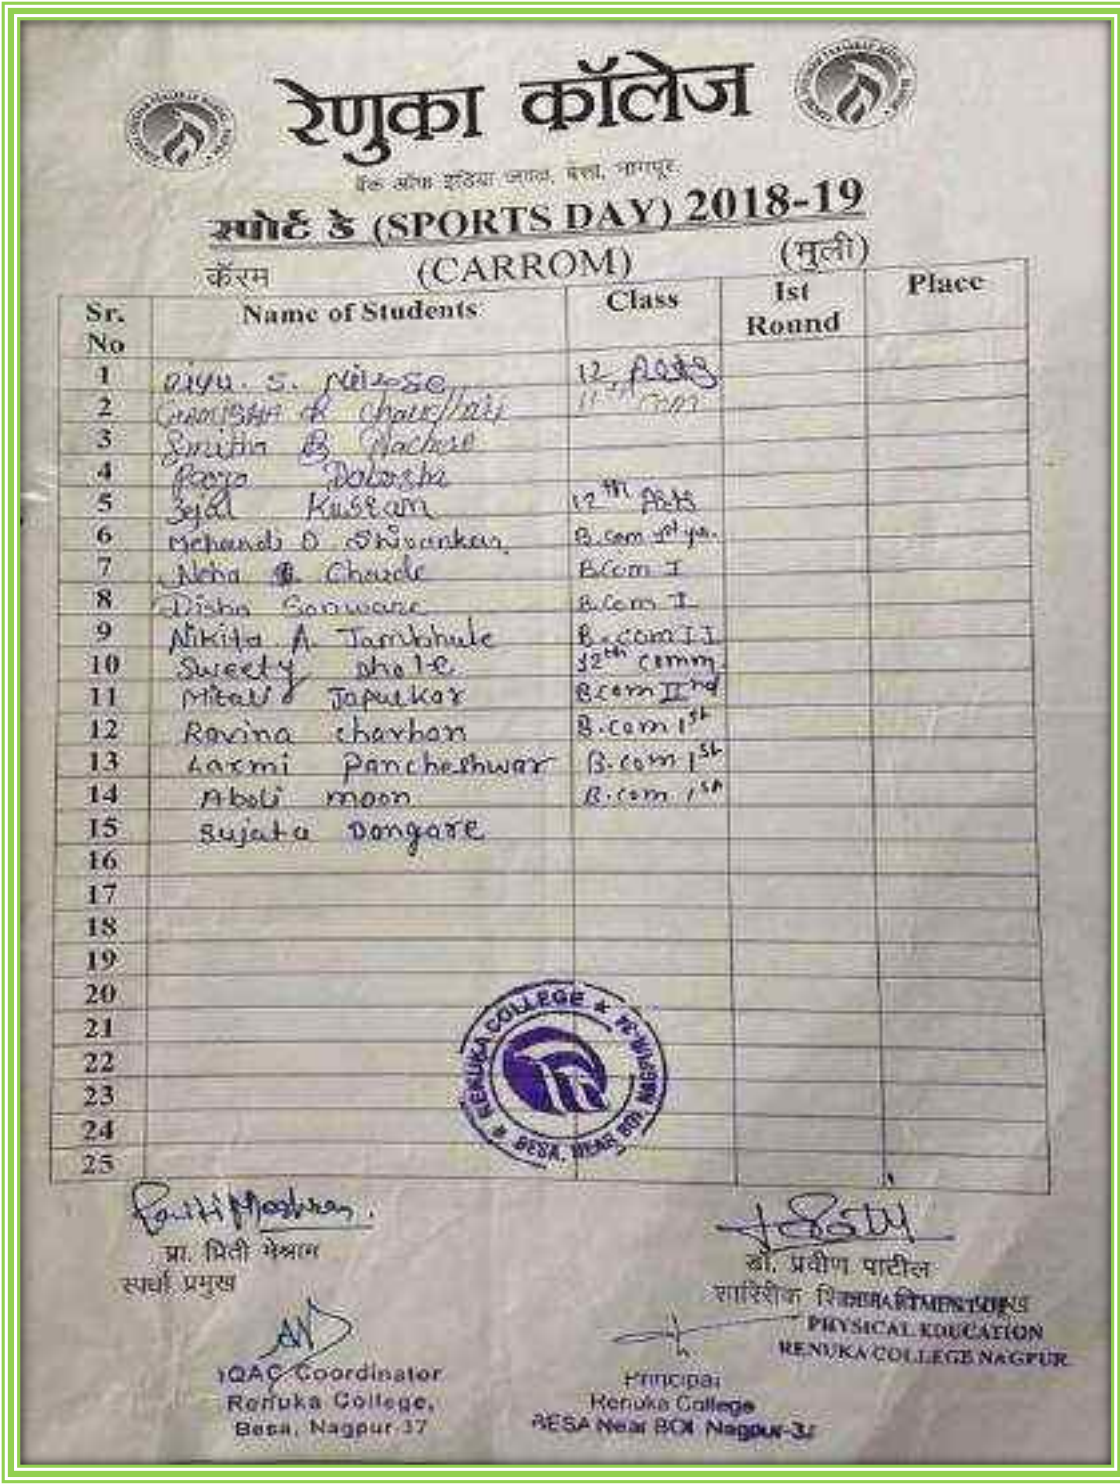 रेणुका कॉलेज
बँक ऑफ इंडिया जवळ, बेसा, नागपूर.
स्पोर्ट डे (SPORTS DAY) 2018-19
कॅरम (CARROM) (मुली)
Sr. No Name of Students Class Ist Round Place
1 S. 12, Arts
2
3 Smitha B
4
5 Sejal 12th Arts
6 D Shivankar B.com 1st yr.
7 Neha Chaude B.Com I
8 Disha Sonware B.Com I
9 Nikita A. Tambhule B.com II
10 Sweety dhote 12th comm.
11 Mitali Tapulkar B.com IInd
12 Ravina charhan B.com 1st
13 Laxmi Pancheshwar B.com 1st
14 Aboli moon B.com 1st
15 Sujata Dongare
16
17
18
19
20
21
22
23
24
25
RENUKA COLLEGE
BESA, NEAR BOI, NAGPUR-34
प्रा. प्रिती मेश्राम
स्पर्धा प्रमुख
डॉ. प्रवीण पाटील
शारिरीक
DEPARTMENT OF
PHYSICAL EDUCATION
RENUKA COLLEGE NAGPUR.
IQAC Coordinator
Renuka College,
Besa, Nagpur-37
Principal
Renuka College
BESA Near BOI Nagpur-37